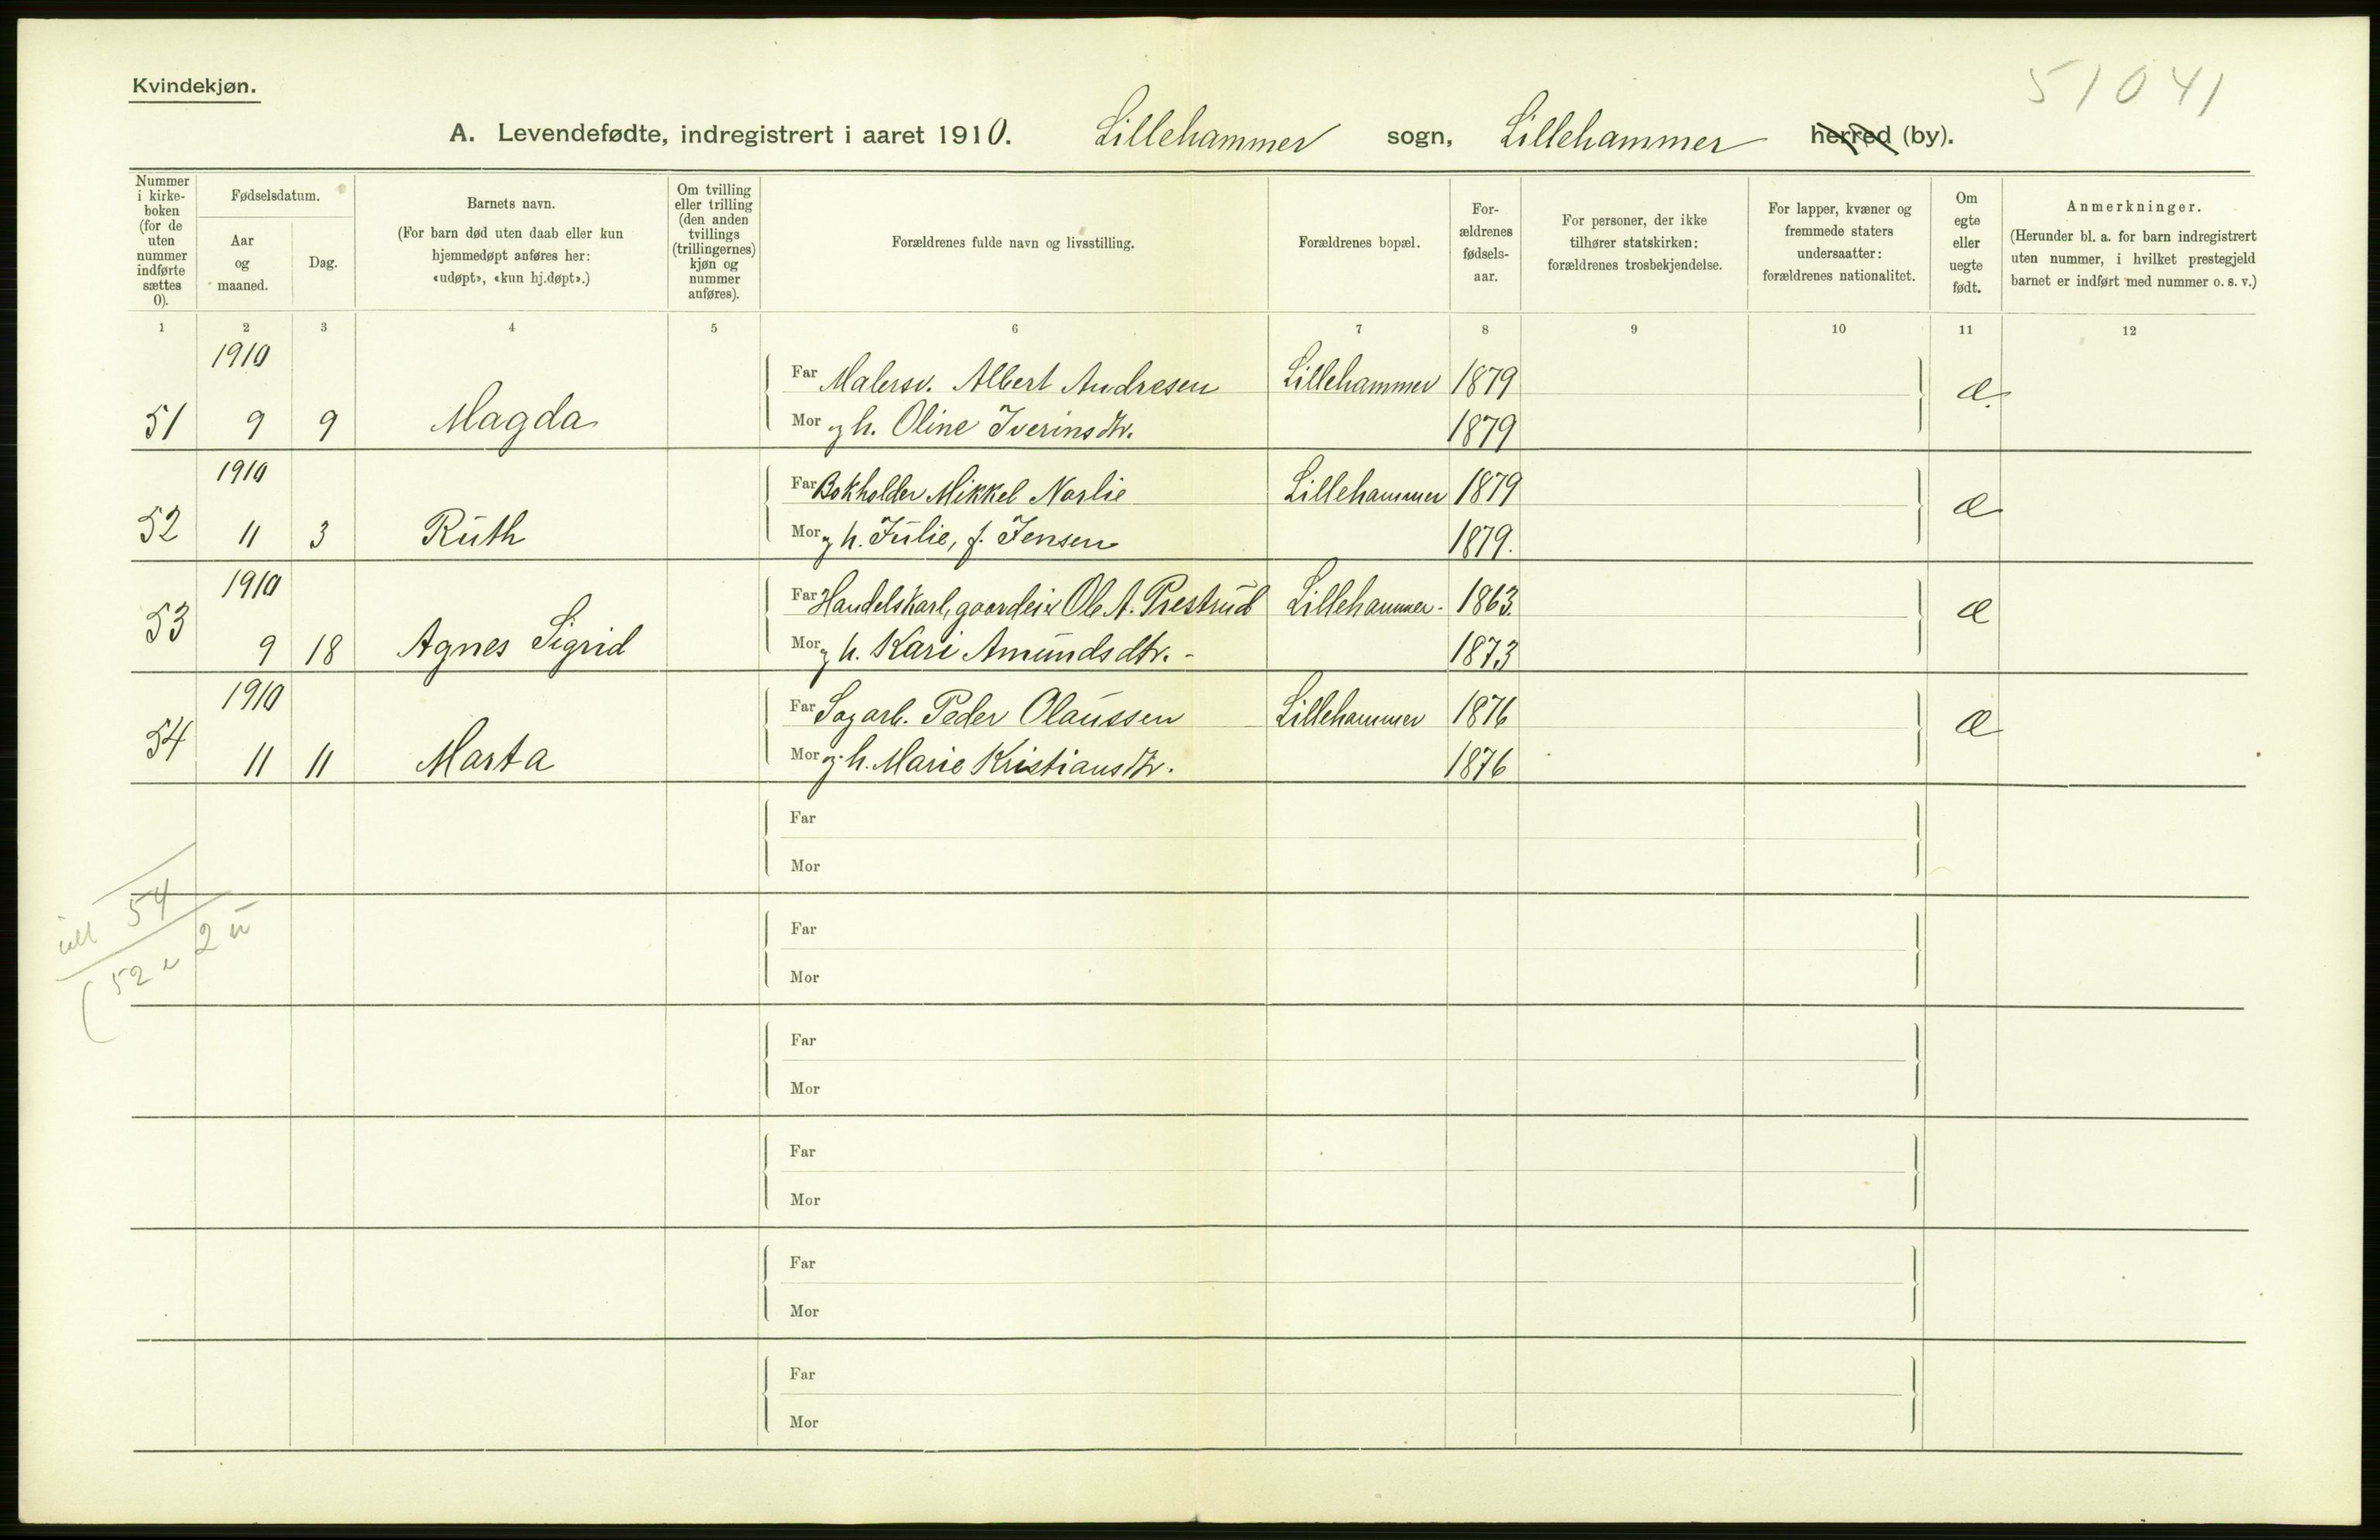 Kvindekjøn.
51041
A. Levendefødte, indregistrert i aaret 1910. Lillehammer sogn, Lillehammer herred (by).
Nummer i kirkeboken (for de uten nummer indførte sættes 0).
Fødselsdatum.
Aar og maaned.
Dag.
Barnets navn.
(For barn død uten daab eller kun hjemmedøpt anføres her: «udøpt», «kun hj.døpt».)
Om tvilling eller trilling (den anden tvillings (trillingernes) kjøn og nummer anføres).
Forældrenes fulde navn og livsstilling.
Forældrenes bopæl.
Forældrenes fødselsaar.
For personer, der ikke tilhører statskirken: forældrenes trosbekjendelse.
For lapper, kvæner og fremmede staters undersaatter: forældrenes nationalitet.
Om egte eller uegte født.
Anmerkninger.
(Herunder bl. a. for barn indregistrert uten nummer, i hvilket prestegjeld barnet er indført med nummer o. s. v.)
1 2 3 4 5 6 7 8 9 10 11 12
1910 Far Malersv. Albert Andresen Lillehammer 1879 æ.
51 9 9 Magda Mor og h. Oline Iverinsdtr. 1879
1910 Far Bokholder Mikkel Norlie Lillehammer 1879 æ
52 11 3 Ruth Mor og h. Julie, f. Jensen 1879.
1910 Far Handelskarl, Ole A. Prestrud Lillehammer 1863 æ
53 9 18 Agnes Sigrid Mor og h. Kari Amundsdtr. 1873
1910 Far Sagarb. Peder Olaussen Lillehammer 1876 æ
54 11 11 Marta Mor og h. Marie Kristiansdtr. 1876
Far
Mor
54
52 2
Far
Mor
Far
Mor
Far
Mor
Far
Mor
Far
Mor